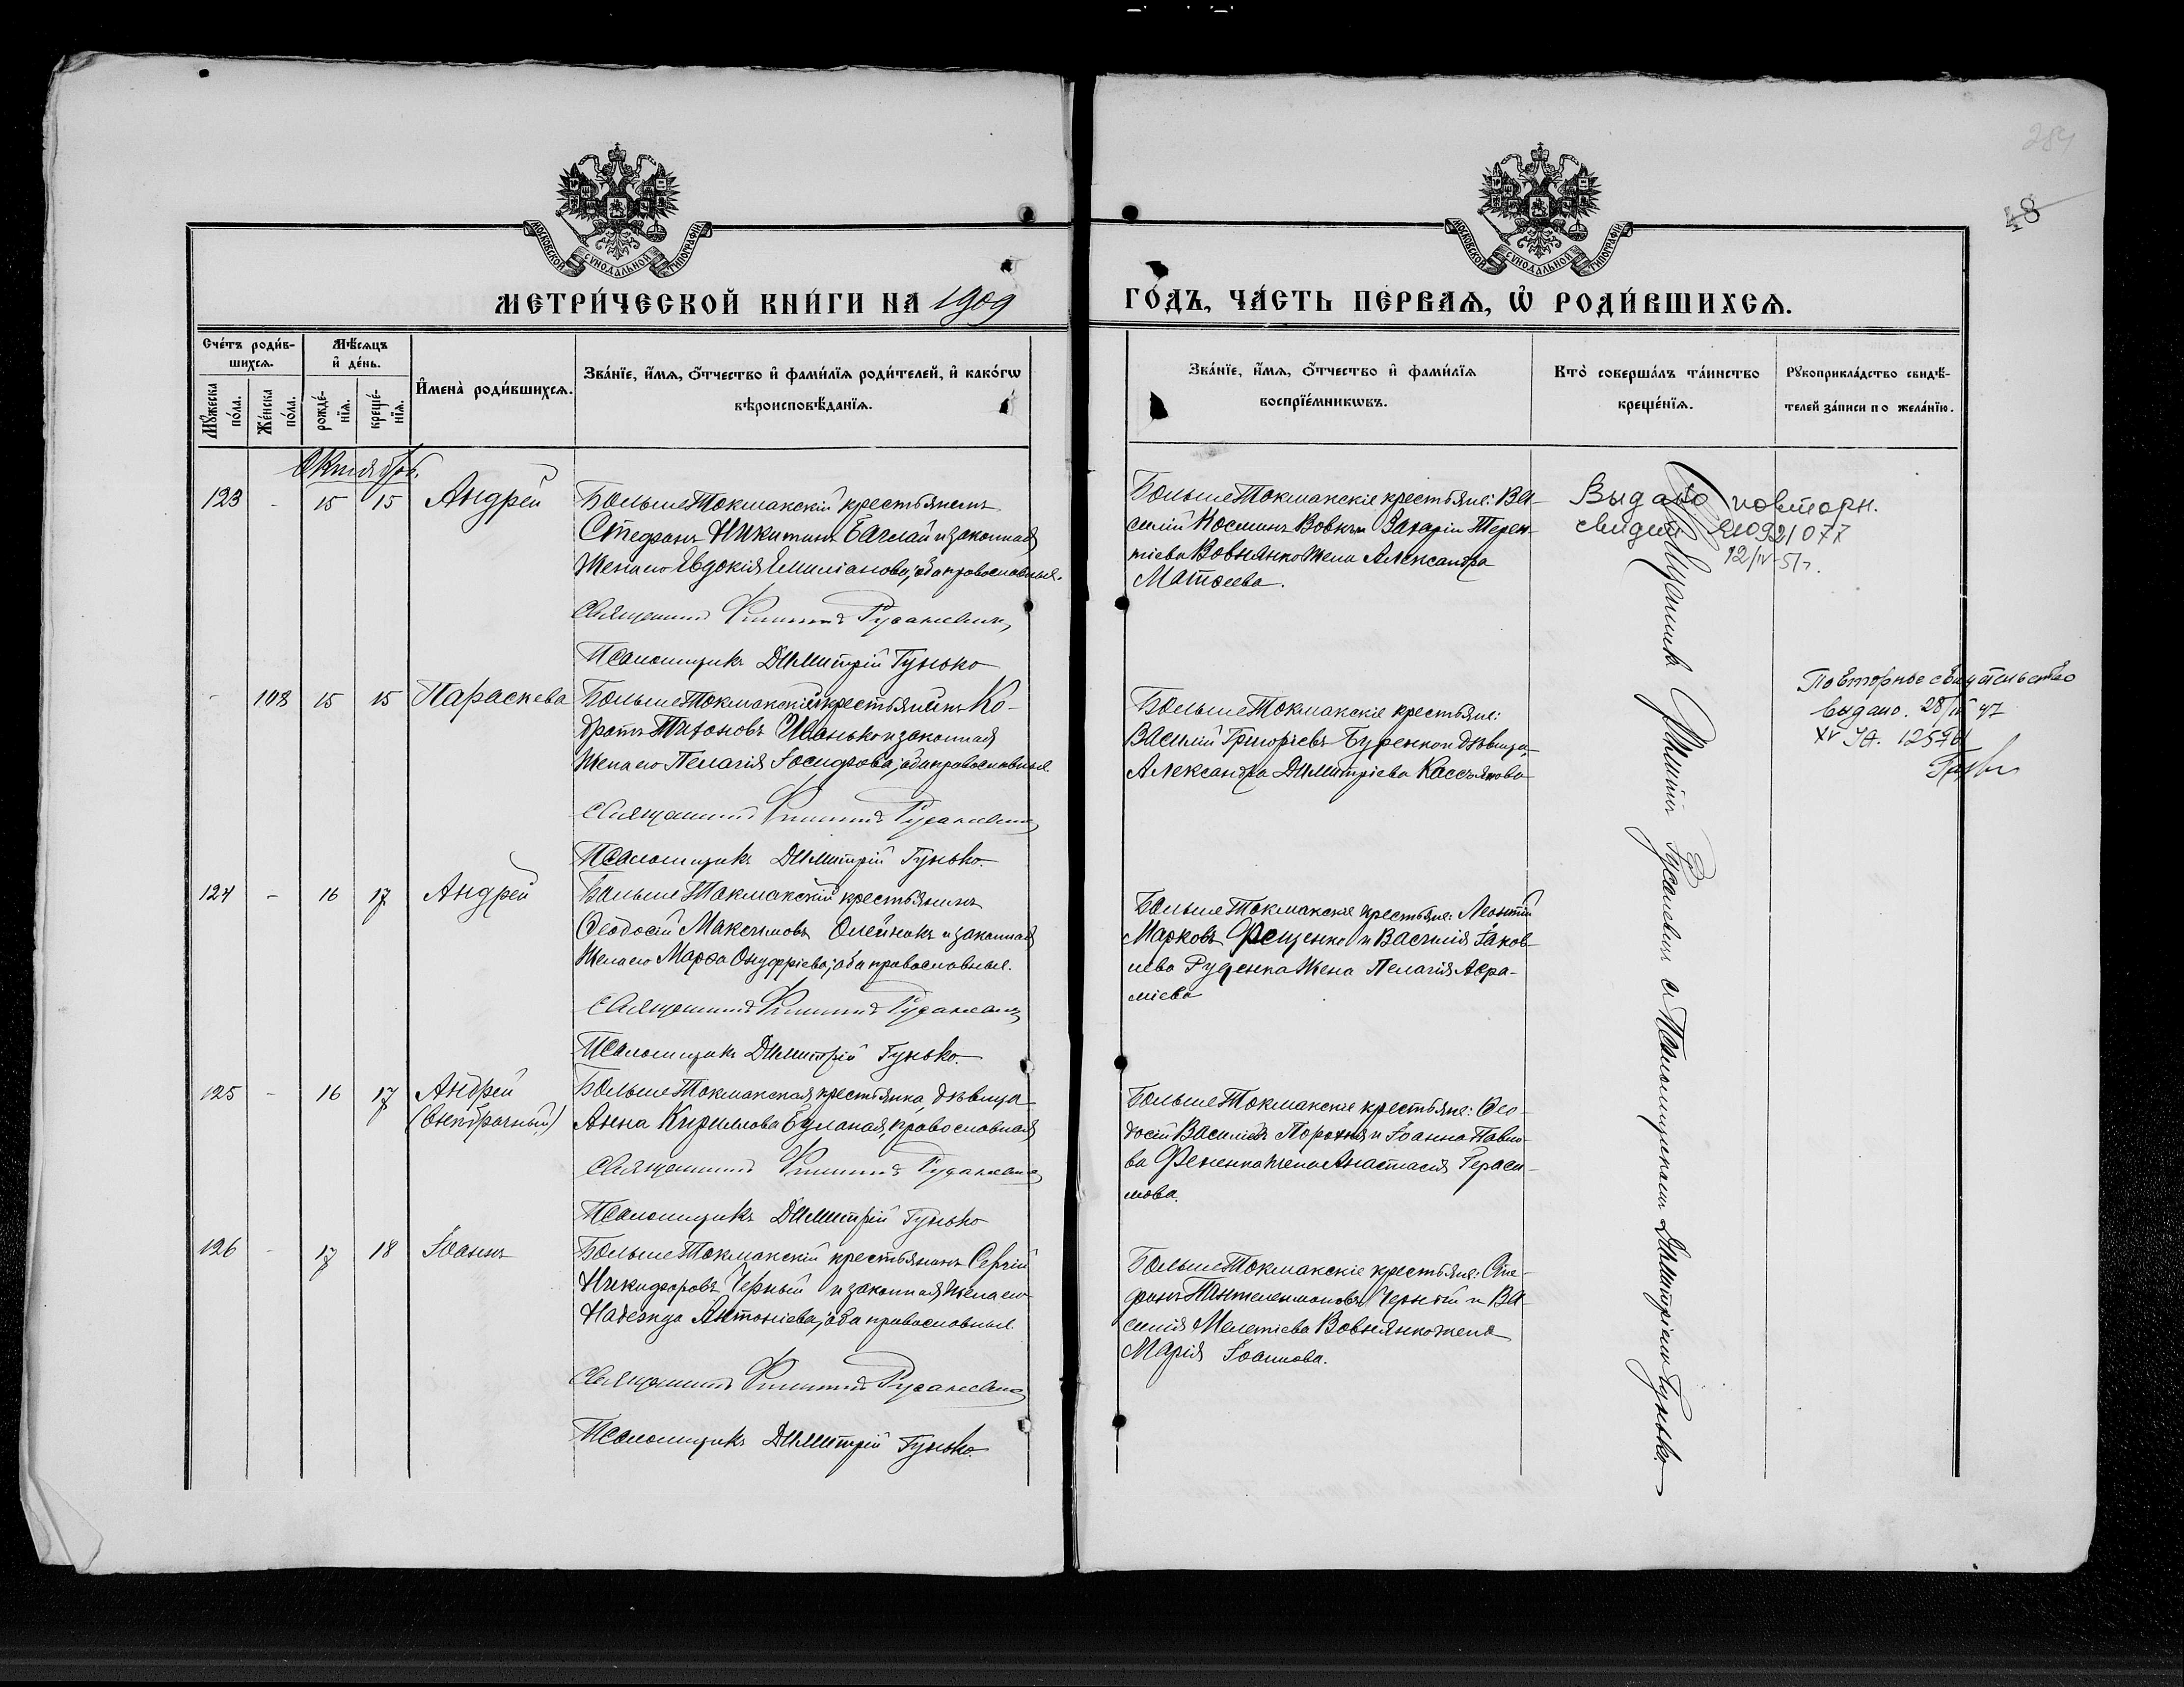 284
48
МОСКОВСКОЙ СѴНОДАЛЬНОЙ ТИПОГРАФІИ
МОСКОВСКОЙ СѴНОДАЛЬНОЙ ТИПОГРАФІИ
МЕТРИ́ЧЕСКОЙ КНИ́ГИ НА 1909
ГО́ДЪ, ЧА́СТЬ ПЕ́РВАѦ, Ѿ РОДИ́ВШИХСѦ.
Сче́тъ роди́в-
шихсѧ.
Мꙋ́жеска по́ла.
Же́нска по́ла.
Мѣ́сѧцъ
и҆ де́нь.
рожде́-
нїѧ.
креще́-
нїѧ.
И҆мена̀ роди́вшихсѧ.
Зва́нїе, и҆́мѧ, ѻ҆́тчество и҆ фами́лїѧ роди́телей, и҆ како́гѡ
вѣроисповѣ́данїѧ.
Зва́нїе, и҆́мѧ, ѻ҆́тчество и҆ фами́лїѧ
воспрїе́мникѡвъ.
Кто̀ соверша́лъ та́инство
креще́нїѧ.
Рꙋкоприкла́дство свидѣ́-
телей за́писи по жела́нїю.
Октябрь.
123 - 15 15 Андрей
Больше Токмакскій крестьянинъ
Стефанъ Никитинъ Баглай и законная
жена его Евдокія Емиліанова, оба православные.
Священникъ Филиппъ Русаневичъ
Псаломщикъ Димитрій Гунько
Больше Токмакскіе крестьяне: Ва-
силій Косминъ Вовкъ и Захарія Терен-
тіева Вовнянко жена Александра
Матѳеева.
Выдано повторн.
свидет. 21092 1077
12/IV-51г.
- 108 15 15 Параскева
Больше Токмакскій крестьянинъ Ко-
дратъ Тихоновъ Иванько и законная
жена его Пелагія Іосифова, оба православные.
Священникъ Филиппъ Русаневичъ
Псаломщикъ Димитрій Гунько.
Больше Токмакскіе крестьяне:
Василій Григоріевъ Буренко и дѣвица
Александра Димитріева Кассьянова
Повторное свидетельство
выдано. 28/IX 47
124 - 16 17 Андрей
Больше Токмакскій крестьянинъ
Ѳеодосій Максимовъ Олейникъ и законная
жена его Марѳа Онуфріева, оба православные.
Священникъ Филиппъ Русаневичъ
Псаломщикъ Димитрій Гунько.
Больше Токмакскіе крестьяне: Леонтій
Марковъ Фещенко и Василія Іаков-
лева Руденка жена Пелагія Авра-
міева
125 - 16 17 Андрей
(Внѣбрачный)
Больше Токмакская крестьянка, дѣвица
Анна Кириллова Буланая, православная
Священникъ Филиппъ Русаневичъ
Псаломщикъ Димитрій Гунько
Больше Токмакскіе крестьяне: Ѳео-
досій Василіевъ Порохня и Іоанна Павло-
ва Фененка жена Анастасія Гераси-
мова.
126 - 17 18 Іоаннъ
Больше Токмакскій крестьянинъ Сергій
Никифоровъ Черный и законная жена его
Надежда Антоніева, оба православные.
Священникъ Филиппъ Русаневичъ
Псаломщикъ Димитрій Гунько.
Больше Токмакскіе крестьяне: Сте-
фанъ Пантелеимоновъ Черный и Ва-
силія Мелетіева Вовнянко жена
Марія Іоаннова.
Священникъ Филиппъ Русаневичъ съ Псаломщикомъ Димитріемъ Гунько.